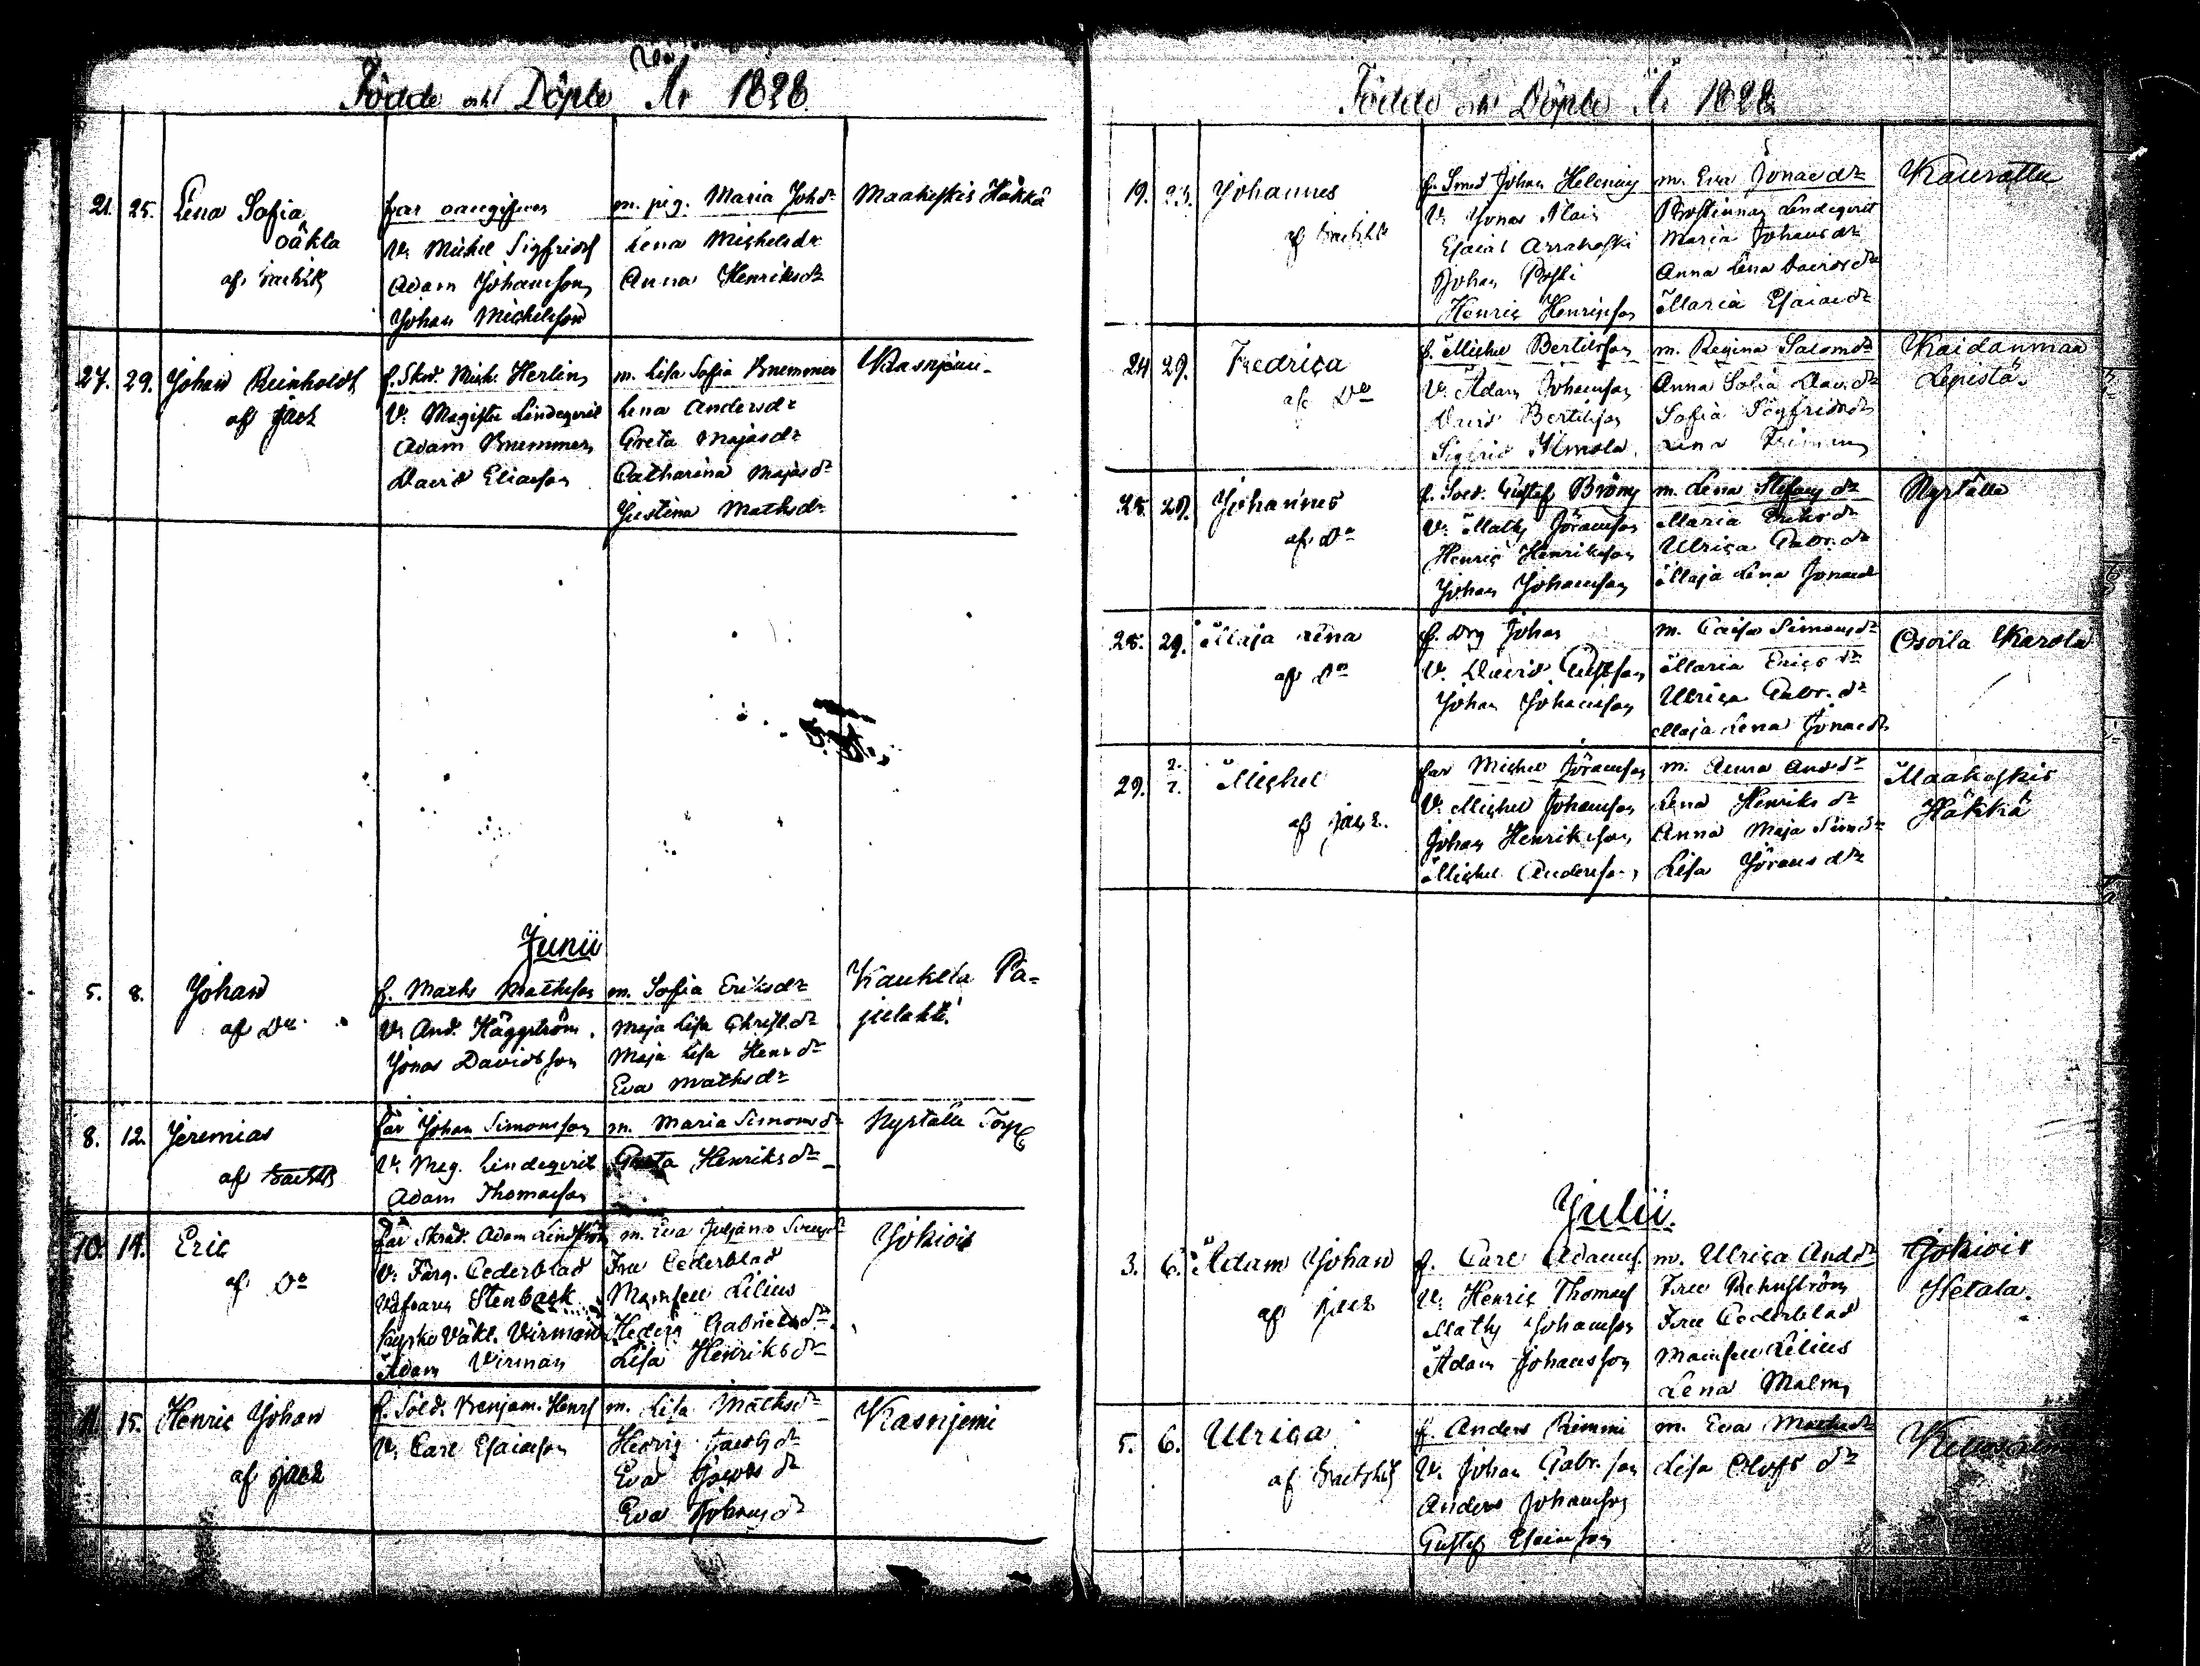 Födde och Döpte År 1828.
21. 25. Lena Sofia far oangifven m. pig. Maria Johdr Maakeskis Häkkä
oäkta V. Michel Sigfridss Lena Michelsdr
af Adam Johansson Anna Henriksdr
Johan Michelsson
27. 29. Johan Reinholdt f. Skrd. Mich. Herlin m. Lisa Sofia Bremmer
af V. Magister Lindeqvist Lena Andersdr
Adam Bremmer Greta Majasdr
David Eliasson Catharina Majasdr
Justina Mathsdr
Junii
5. 8. Johan f. Maths Mathsson m. Sofia Eriksdr Kaukela Pa-
af Do V. And. Häggström Maja Lisa Christ.dr julahti
Jonas Davidsson Maja Lisa Henr.dr
Eva Mathsdr
8. 12. Jeremias far Johan Simonsson m. Maria Simonsdr Nyrtälle Torp
af V. Mag. Lindeqvist Greta Henriksdr
Adam Thomasson
10. 14. Eric far Skrad. Adam Lindström m. Eva Juliana Jokiois
af Do V. Färg. Cederblad Fru Cederblad
Stenback Mamsell Lilius
Virman Hedvig Gabrielsdr
Adam Virman Lisa Henriksdr
11. 15. Henric Johan f. Sold. Benjam. Henrs m. Lisa Mathsdr
af V. Carl Esaiasson Hedvig Jacobsdr
Eva Jacobsdr
Eva Johansdr
Födde och Döpte År 1828
19. 23. Johannes f. Smed Johan Helenius m. Eva Jonaedr
af V. Jonas Lindeqvist
Esaias Maria Johansdr
Johan Anna Lena Davidsdr
Henric Henricsson Maria Esaiaedr
24 29. Fredrica f. Michel Bertilsson m. Regina Salomdr Kaidanmaa
af Do V. Adam Johansson Anna Sofia Dav.dr Lepistä
David Bertilsson Sofia Sigfridsdr
Sigfrid Lena
25. 29. Johannes f. Sold. Gustaf m. Lena Stefansdr Nyrtälle
af Do V. Maths Göransson Maria Eriksdr
Henric Henriksson Ulrica Gabr.dr
Johan Johansson Maja Lena Jonaedr
25. 29. Maja Lena f. Drg Johan m. Caisa Simonsdr Osoila Karola
af Do V. David Gustfson Maria Ericsdr
Johan Johansson Ulrica Gabr.dr
Maja Lena Jonaedr
29. 2. 7. Michel far Michel Göransson m. Anna And.dr Maakeskis
af V. Michel Johansson Lena Henriksdr Häkkä
Johan Henriksson Anna Maja Simsdr
Michel Andersson Lisa Göransdr
Julii.
3. 6. Adam Johan f. Carl Adamss. m. Ulrica Anddr Jokiois
af V. Henric Thomass Fru Rehnström Hetala.
Maths Johansson Fru Cederblad
Adam Johansson Mamsell Lilius
Lena Malm
5. 6. Ulrica f. Anders Rimmi m. Eva Mathsdr
af V. Johan Gabr.son Lisa Olofsdr
Anders Johansson
Gustaf Esaiasson